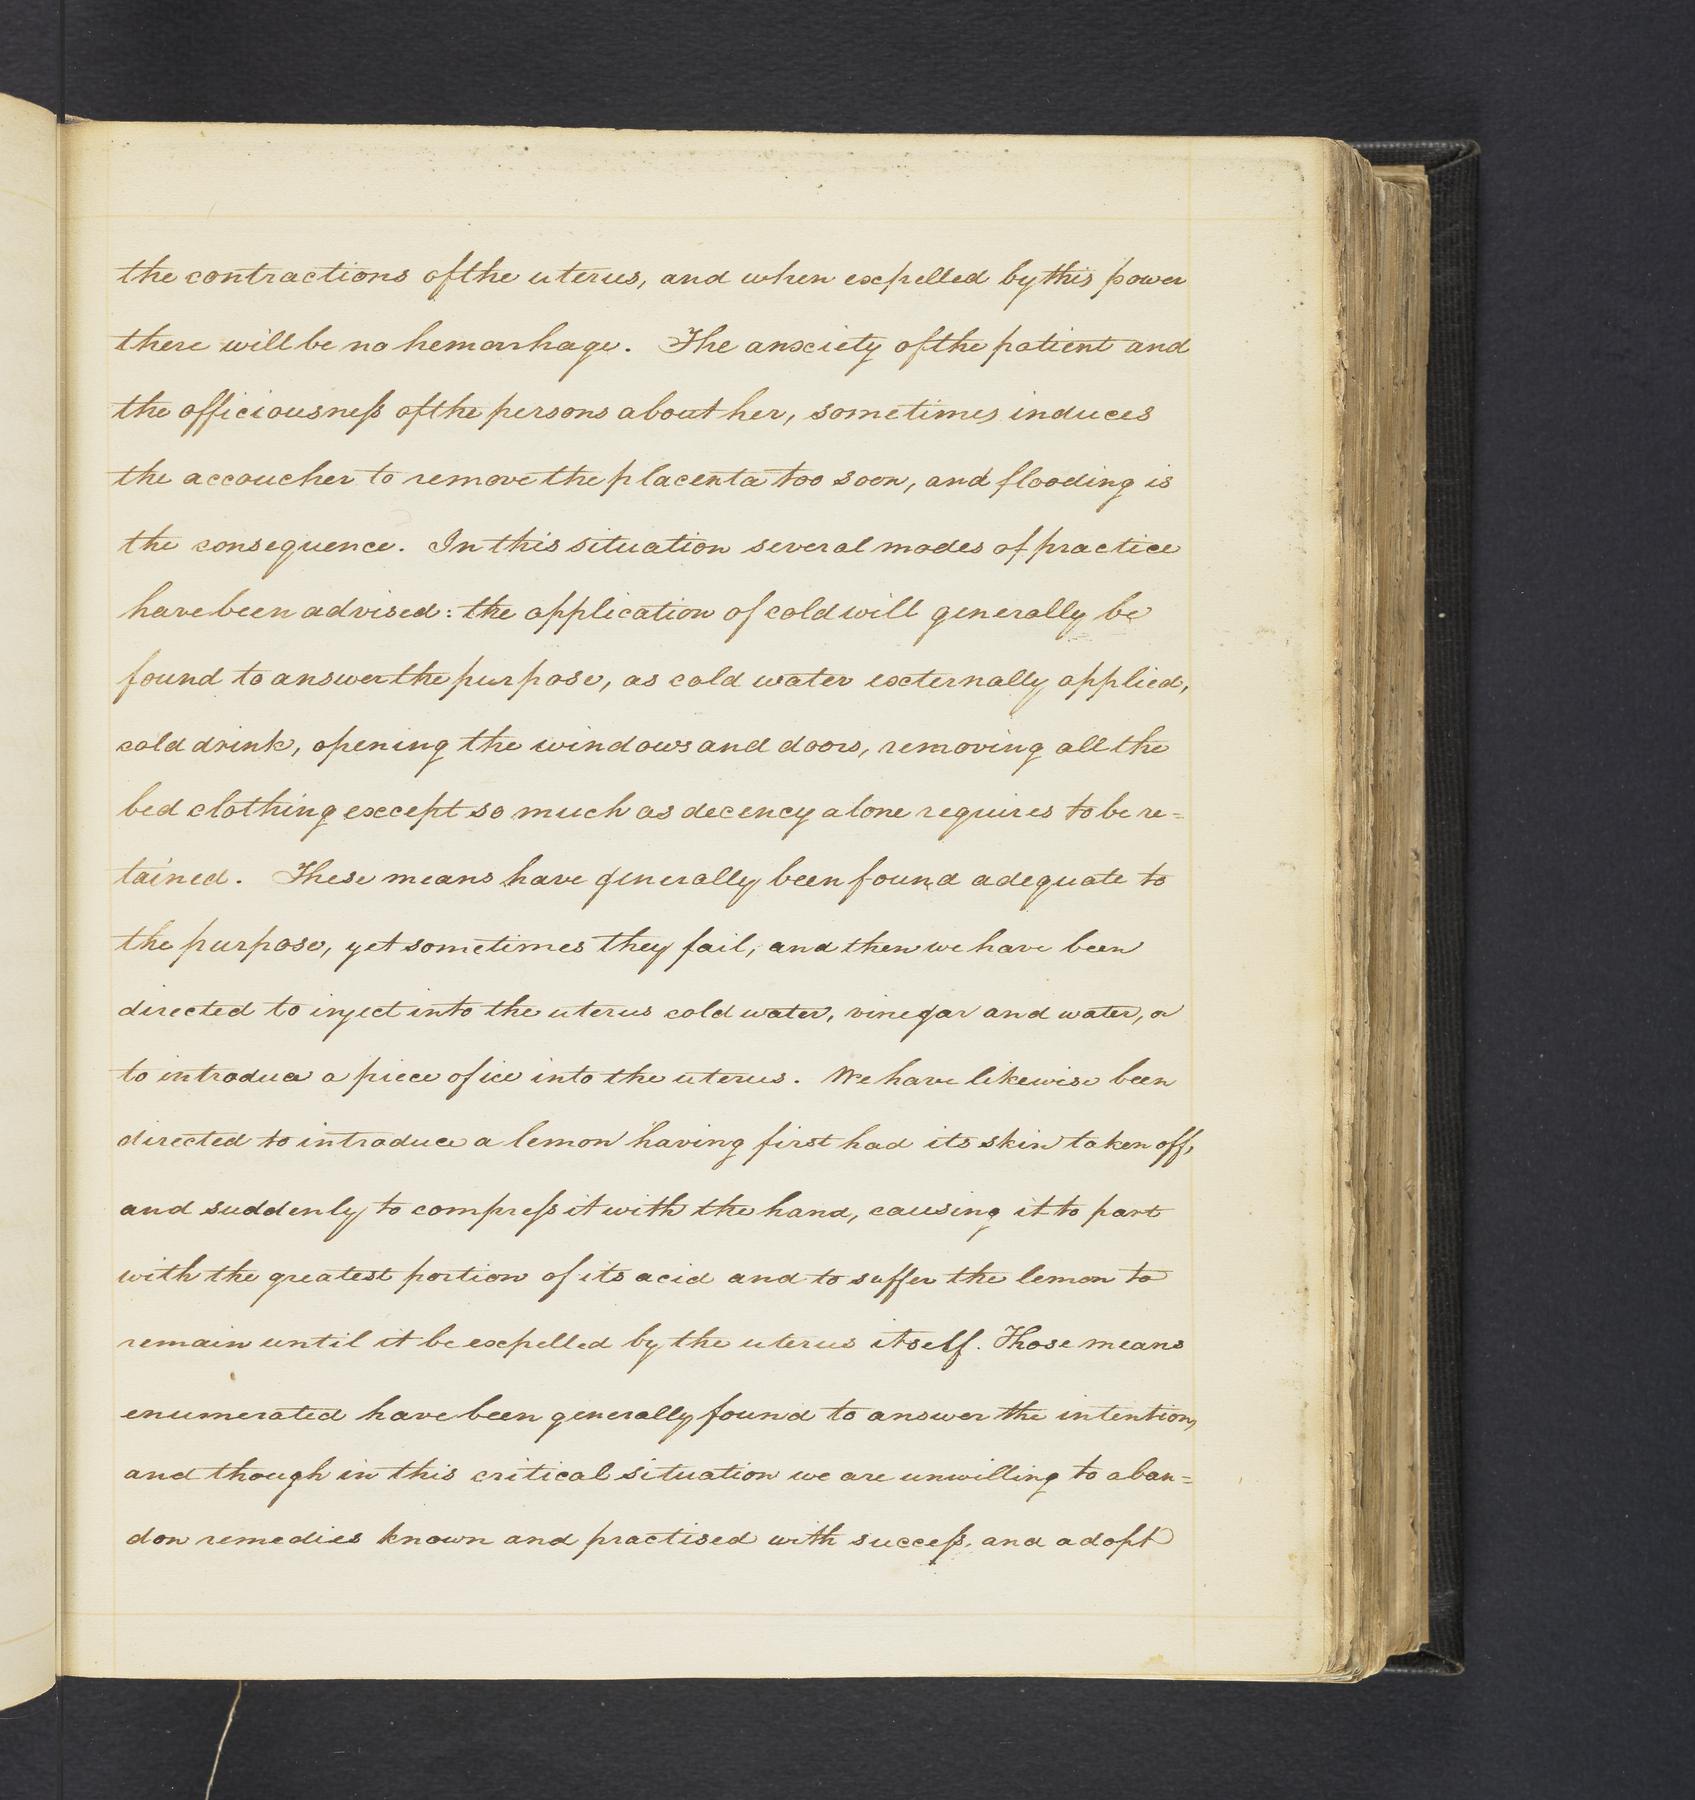 the contractions of the uterus, and when expelled by this power
there will be no hemorrhage. The anxiety of the patient and
the officiousneſs of the persons about her, sometimes induces
the accoucher to remove the placenta too soon, and flooding is
the consequence. In this situation several modes of practice
have been advised: the application of cold will generally be
found to answer the purpose, as cold water externally applied,
cold drink, opening the windows and doors, removing all the
bed clothing except so much as decency alone requires to be re=
tained. These means have generally been found adequate to
the purpose, yet sometimes they fail, and then we have been
directed to inject into the uterus cold water, vinegar and water, or
to introduce a piece of ice into the uterus. We have likewise been
directed to introduce a lemon having first had its skin taken off,
and suddenly to compreſs it with the hand, causing it to part
with the greatest portion of its acid and to suffer the lemon to
remain until it be expelled by the uterus itself. Those means
enumerated have been generally found to answer the intention,
and though in this critical situation we are unwilling to aban=
don remedies known and practised with succeſs, and adopt